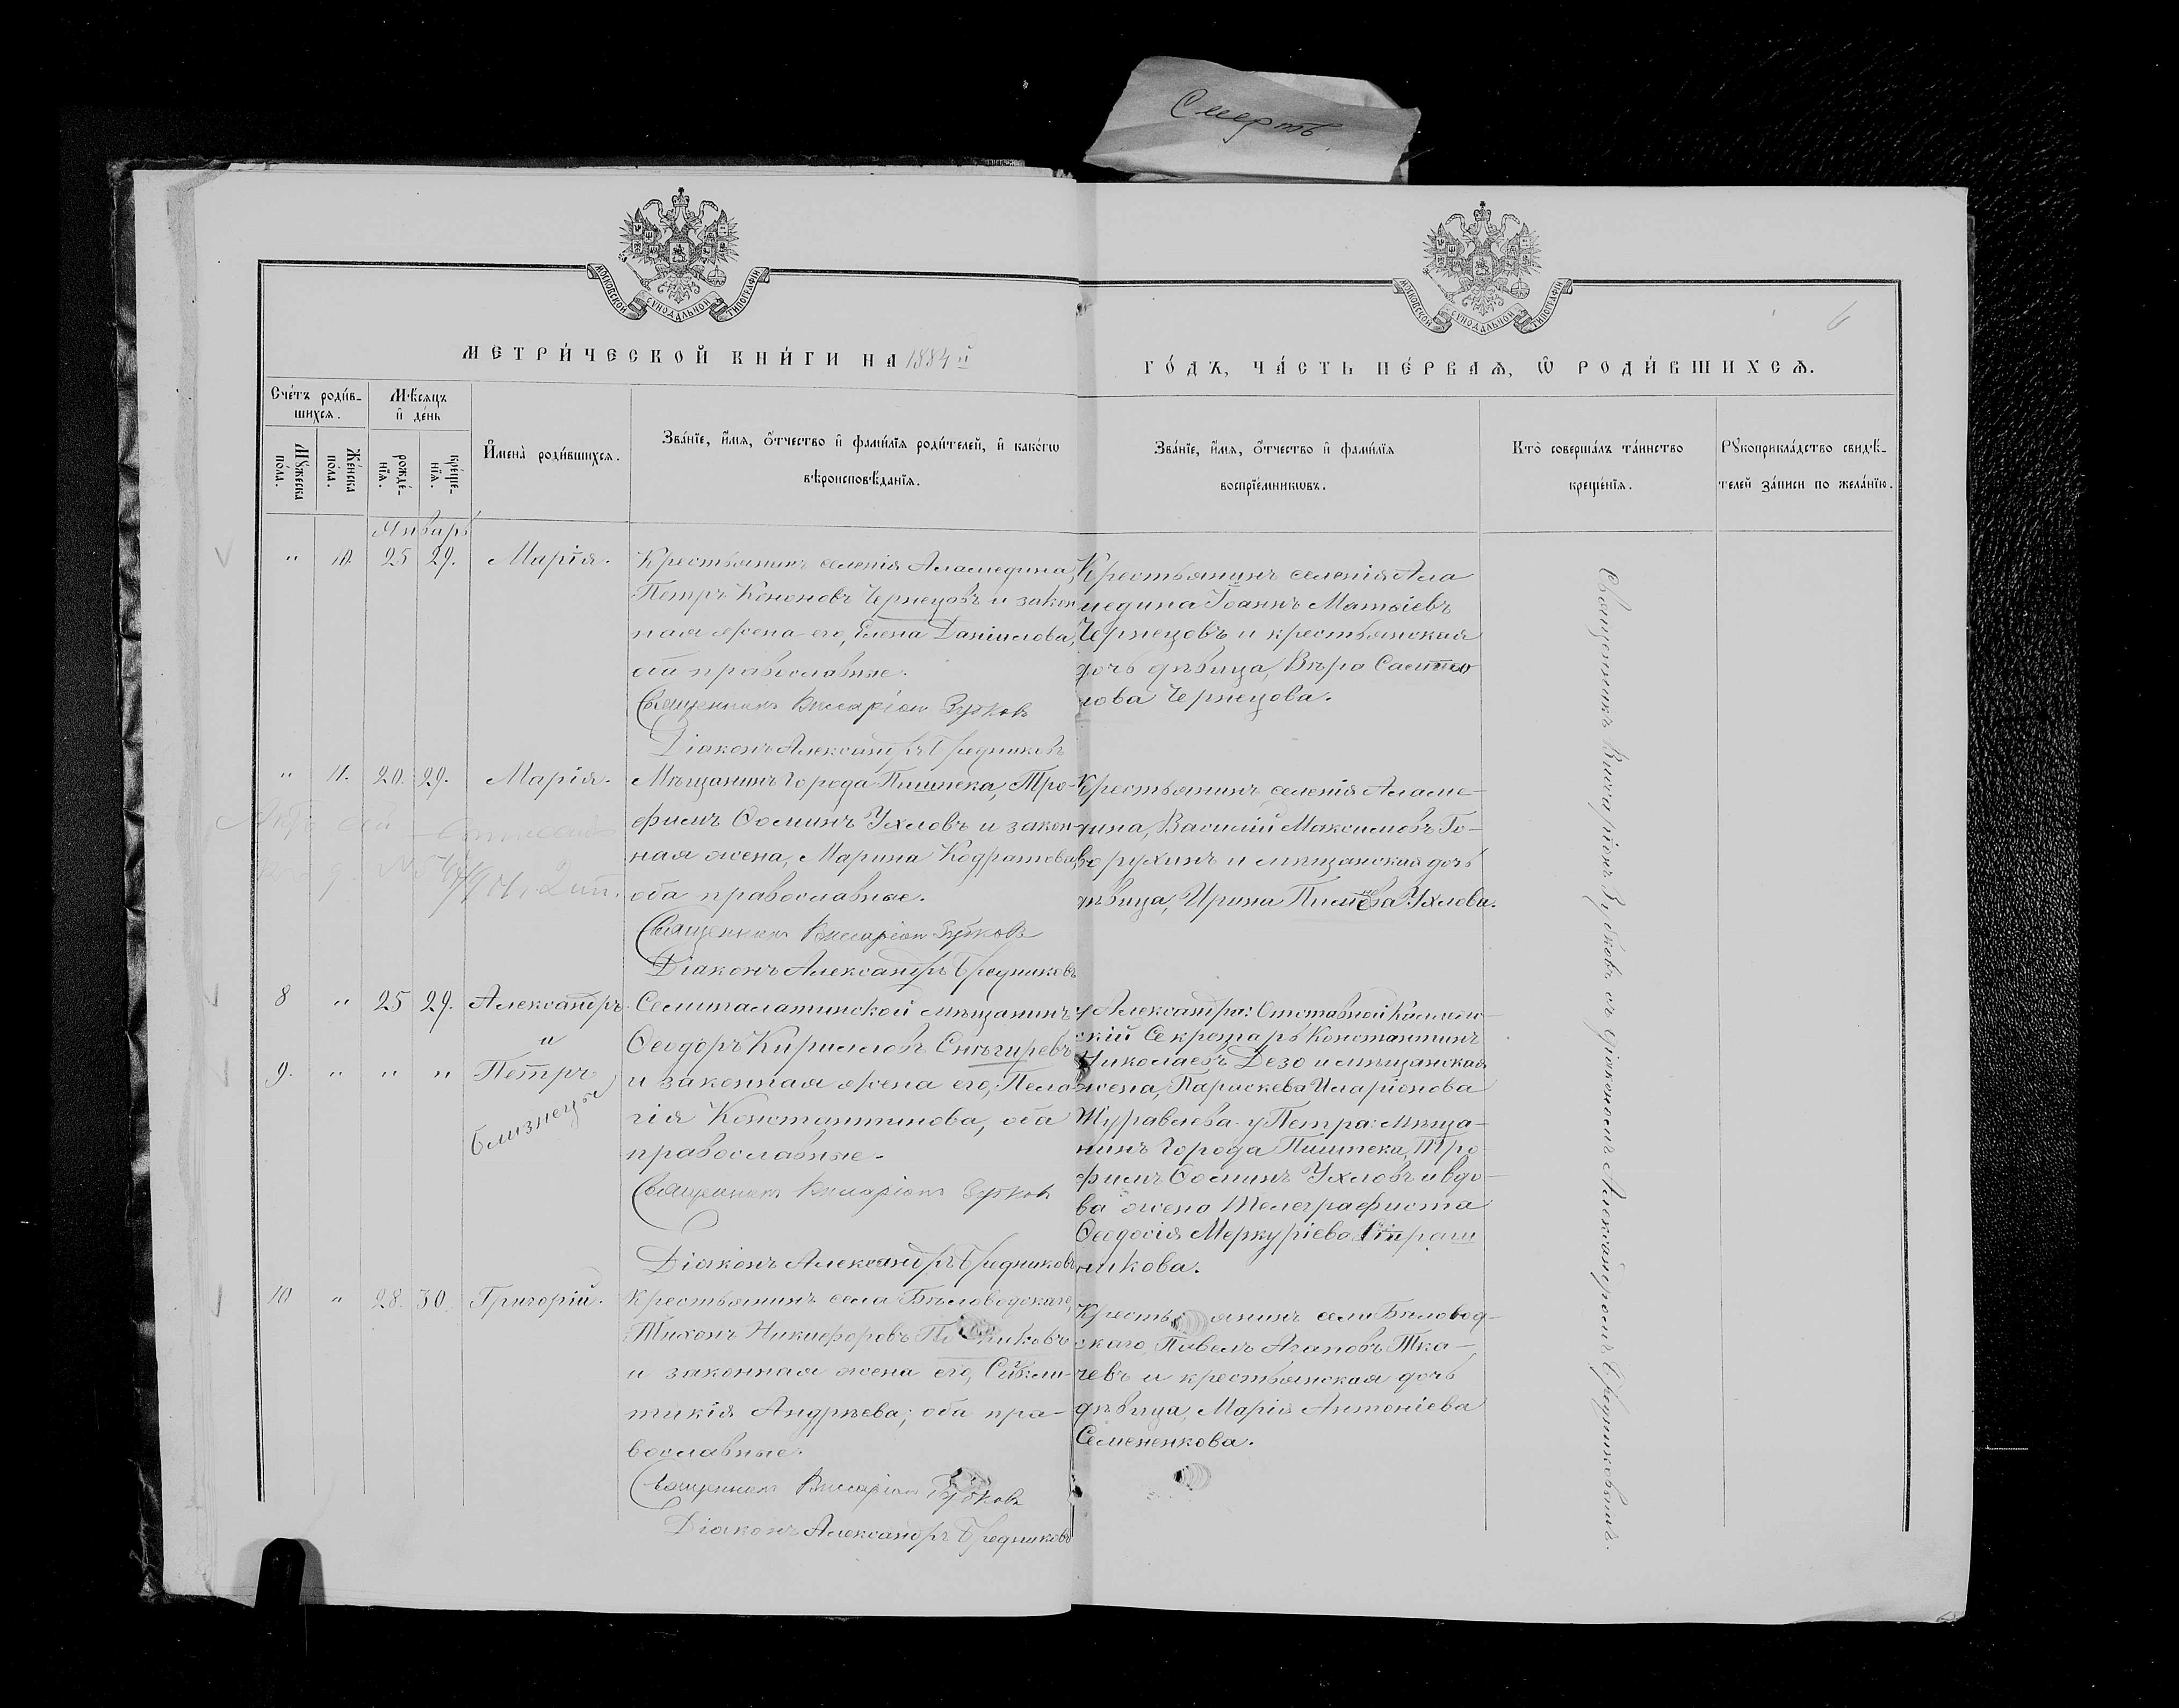 Смерть
МОСКОВСКОЙ СѴНОДАЛЬНОЙ ТИПОГРАФІИ
МОСКОВСКОЙ СѴНОДАЛЬНОЙ ТИПОГРАФІИ
6
МЕТРИ́ЧЕСКОЙ КНИ́ГИ НА 1884 й
ГО́ДЪ, ЧА́СТЬ ПЕ́РВАѦ, Ѿ РОДИ́ВШИХСѦ.
Сче́тъ роди́в-
шихсѧ.
Мꙋ́жеска
по́ла.
Же́нска
по́ла.
Мѣ́сѧцъ
и҆ де́нь
рожде́-
нїѧ.
креще́-
нїѧ.
И҆мена̀ роди́вшихсѧ.
Зва́нїе, и҆́мѧ, ѻ҆́тчество и҆ фами́лїѧ роди́телей, и҆ како́гѡ
вѣроисповѣ́данїѧ.
Зва́нїе, и҆́мѧ, ѻ҆́тчество и҆ фами́лїѧ
воспрїе́мникѡвъ.
Кто̀ соверша́лъ та́инство
креще́нїѧ.
Рꙋкоприкла́дство свидѣ́-
телей за́писи по жела́нїю.
Январь
" 10. 25 29. Марія.
Крестьянинъ селенія Аламедина,
Петръ Кононовъ Чернецовъ и закон
ная жена его, Елена Даніилова,
оба православные.
Священникъ Виссаріонъ Зубковъ
Діаконъ Александръ Бредниковъ
Крестьянинъ селенія Ала
медина Іоаннъ Матѳіевъ
Чернецовъ и крестьянская
дочь дѣвица, Вѣра
лова Чернецова.
" 11. 20. 29. Марія.
Мѣщанинъ города Пишпека, Тро-
фимъ Ѳоминъ Ухловъ и закон-
ная жена, Марина Кодратова,
оба православные.
Священникъ Виссаріонъ Зубковъ
Діаконъ Александръ Бредниковъ
Крестьянинъ селенія Аламе-
дина, Василій Максимовъ Го-
ворухинъ и мѣщанская дочь
дѣвица, Ирина Ухлова.
8 " 25 29. Александръ
и
9. " " " Петръ
близнецы
Семипалатинской мѣщанинъ
Ѳеодоръ Кирилловъ Снѣгиревъ
и законная жена его, Пела
гія Константинова, оба
православные.
Священникъ Виссаріонъ Зубковъ
Діаконъ Александръ Бредниковъ
у Александра: Отставной Коллеж-
скій Секретарь Константинъ
Николаевъ Дезо и мѣщанская
жена, Параскева Иларіонова
Журавлева. у Петра: мѣща-
нинъ города Пишпека, Тро
фимъ Ѳоминъ Ухловъ и вдо-
ва жена Телеграфиста
Ѳеодосія Меркуріева
никова.
10 " 28. 30. Григорій.
Крестьянинъ села Бѣловодскаго,
Тихонъ Никифоровъ
и законная жена его, Синкли-
тикія Андреева; оба пра-
вославные.
Священникъ Виссаріонъ Зубковъ
Діаконъ Александръ Бредниковъ
Крестьянинъ села Бѣловод-
скаго, Павелъ Агаповъ Тка-
чевъ и крестьянская дочь
дѣвица, Марія Антоніева
Семененкова.
Священникъ Виссаріонъ Зубковъ съ діакономъ Александромъ Бредниковымъ.